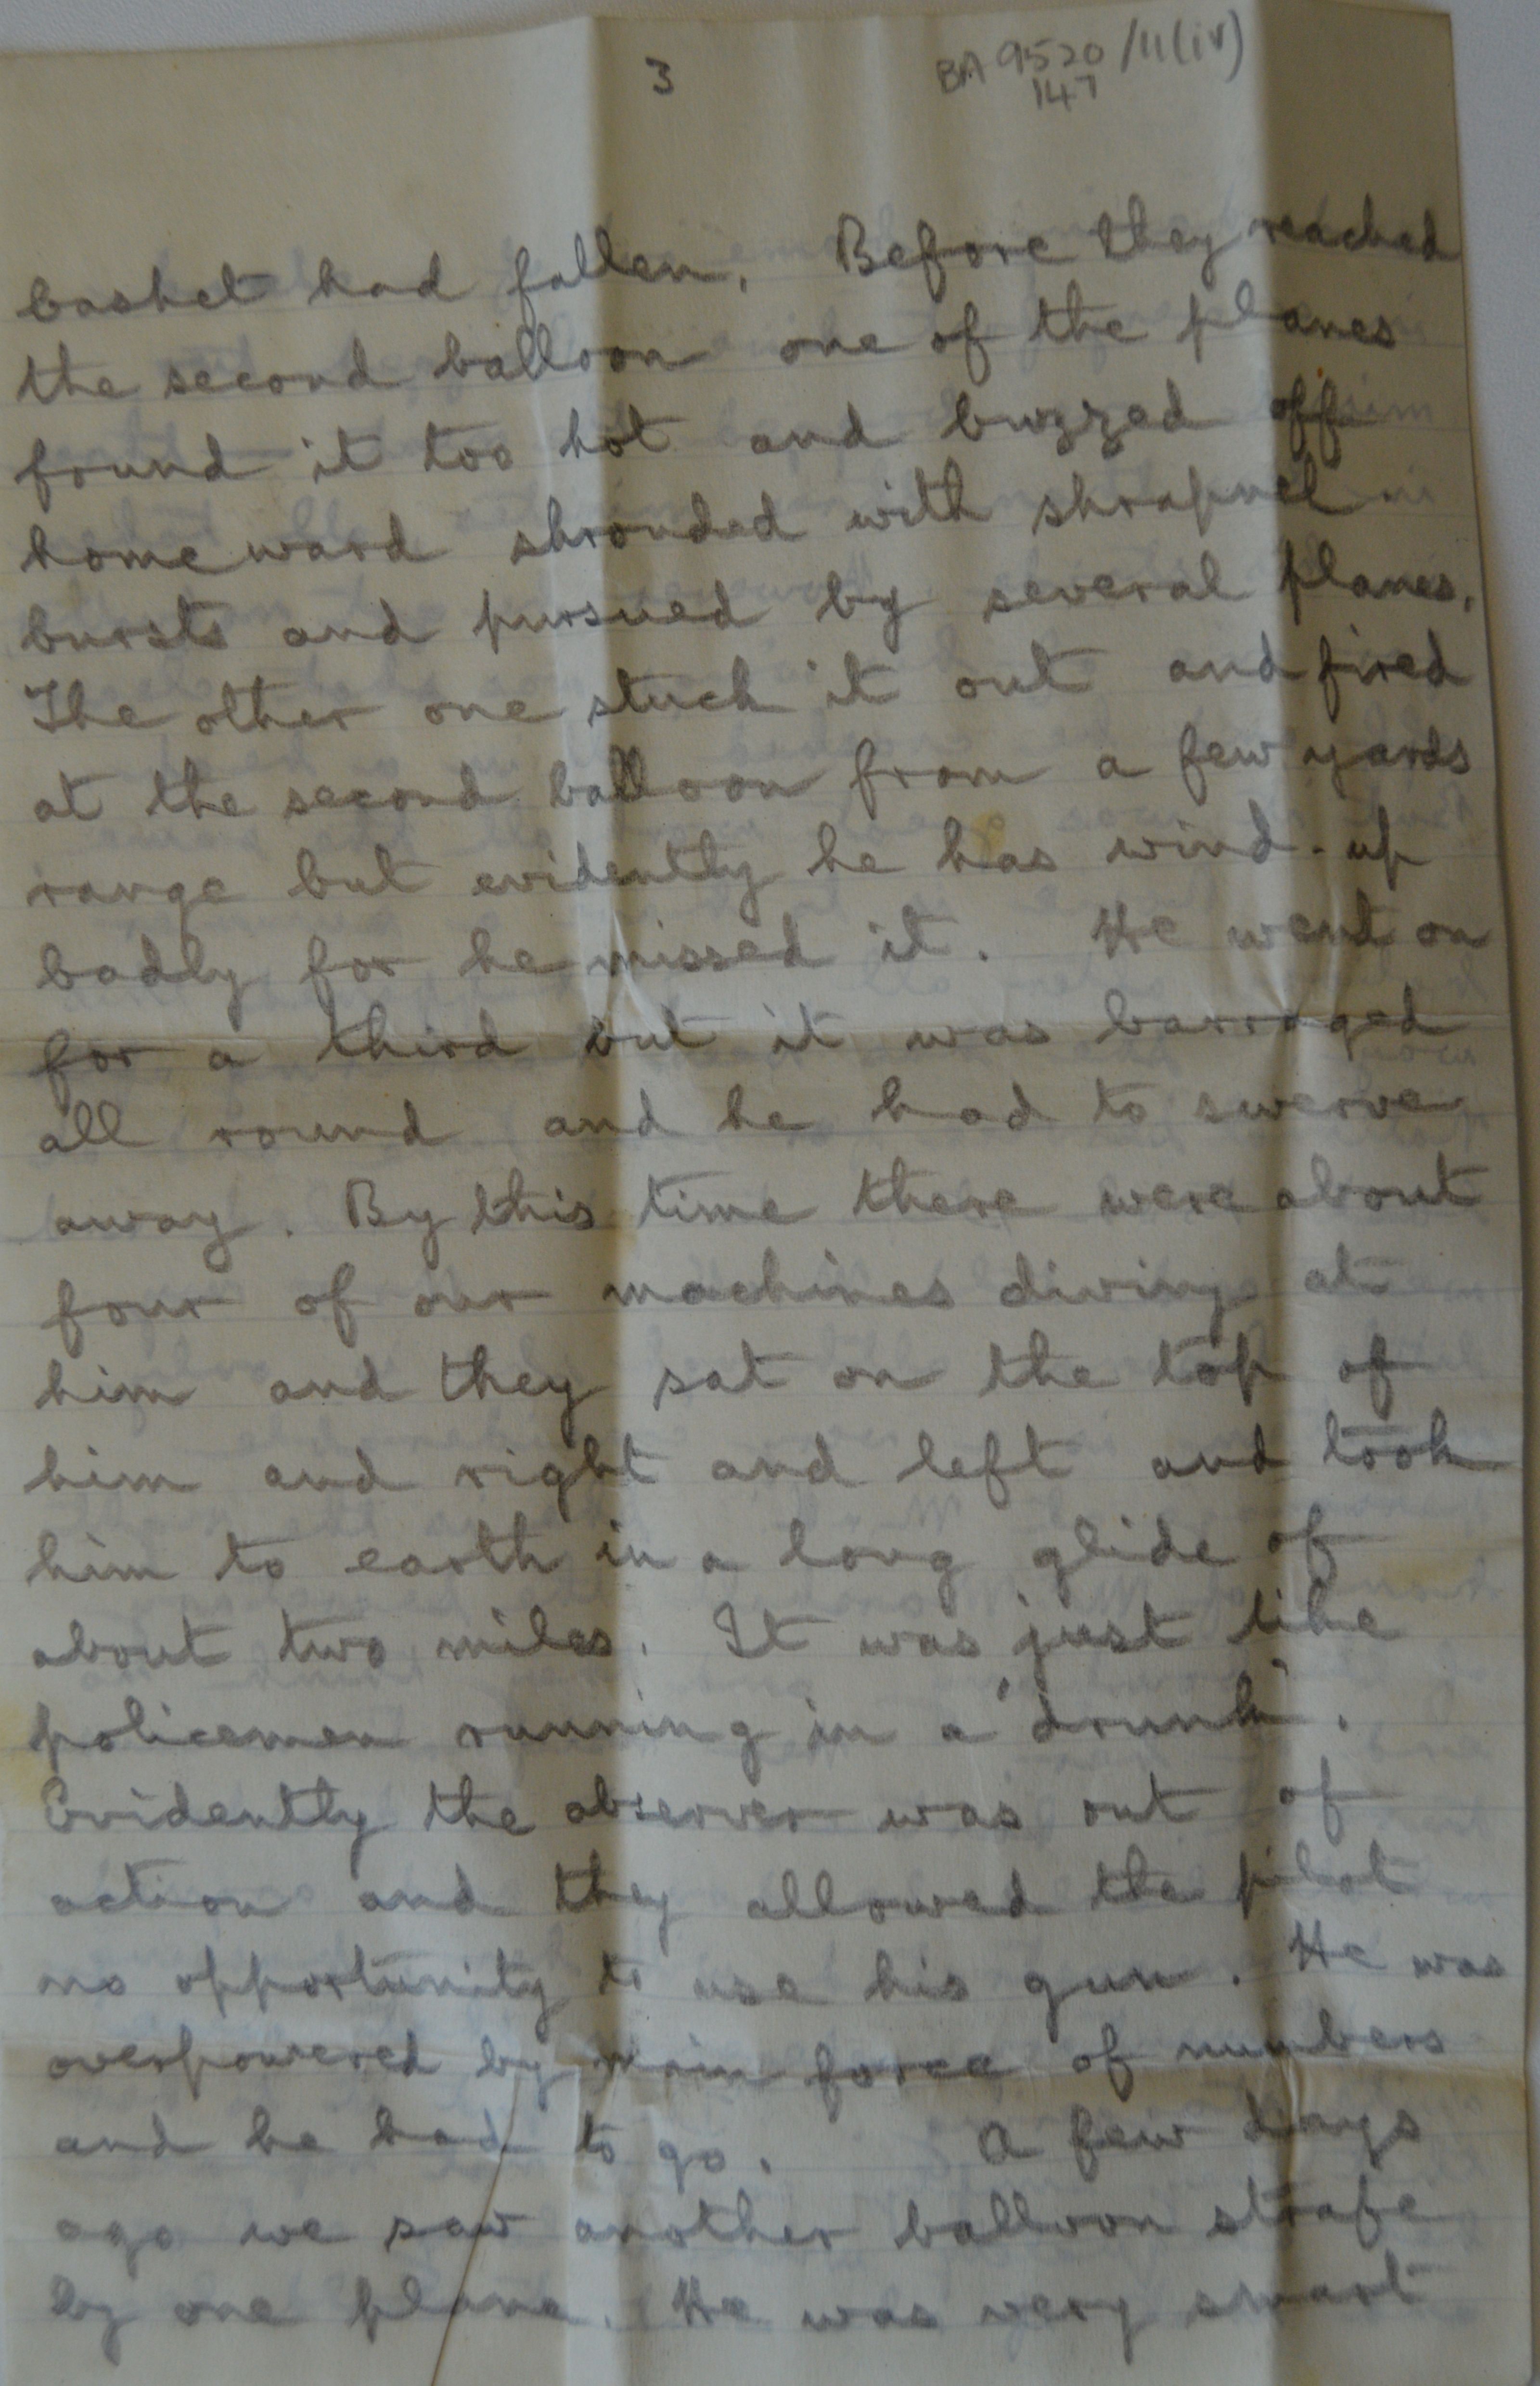 3
BA 9520/11(iv)
147
basket had fallen. Before they reached
the second balloon one of the planes
found it too hot and buzzed off
homeward shrouded with shrapnel
bursts and pursued by several planes.
The other one stuck it out and fired
at the second balloon from a few yards
range but evidently he has wind-up
badly for he missed it. He went on
for a third but it was barraged
all round and he had to swerve
away. By this time there were about
four of our machines diving at
him and they sat on the top of
him and right and left and took
him to earth in a long glide of
about two miles. It was just like
policemen running in a 'drunk'.
Evidently the observer was out of
action and they allowed the pilot
no opportunity to use his gun. He was
overpowered by main force of numbers
and he had to go. A few days
ago we saw another balloon strafe
by one plane. He was very smart